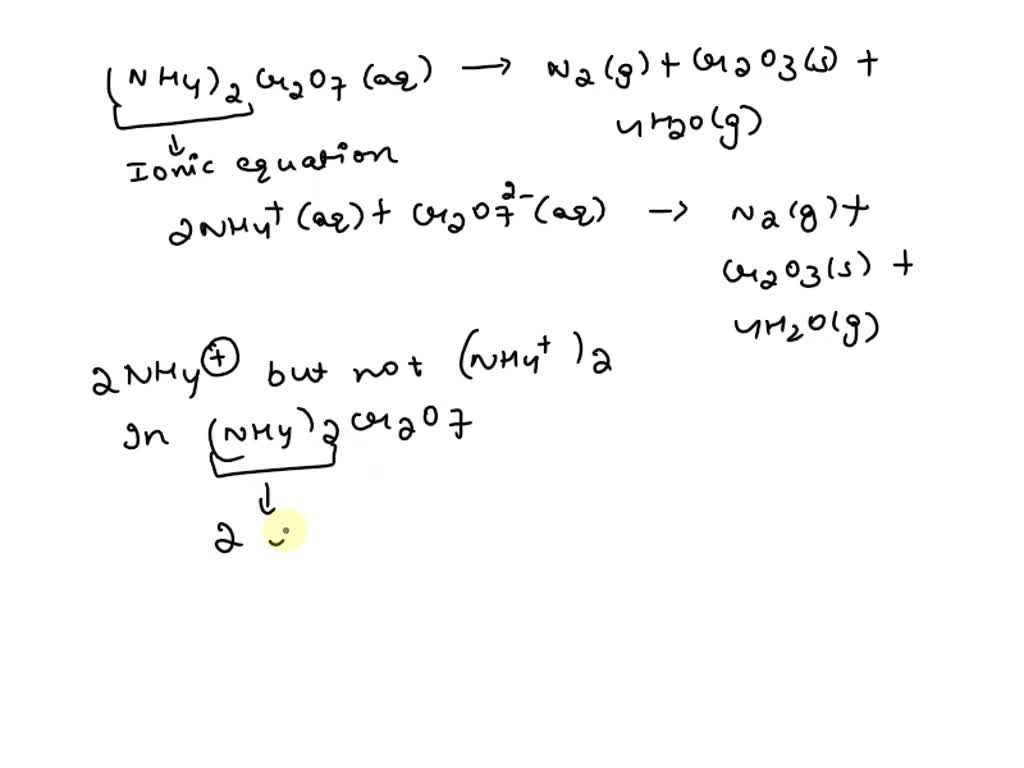 (NH4)2 Cr2O7 (aq) → N2(g) + Cr2O3(s) +
4H2O(g)
↓
Ionic equation
2NH4+ (aq) + Cr2O7 2- (aq) → N2(g) +
Cr2O3(s) +
4H2O(g)
2NH4⊕ but not (NH4+)2
In (NH4)2 Cr2O7
↓
2